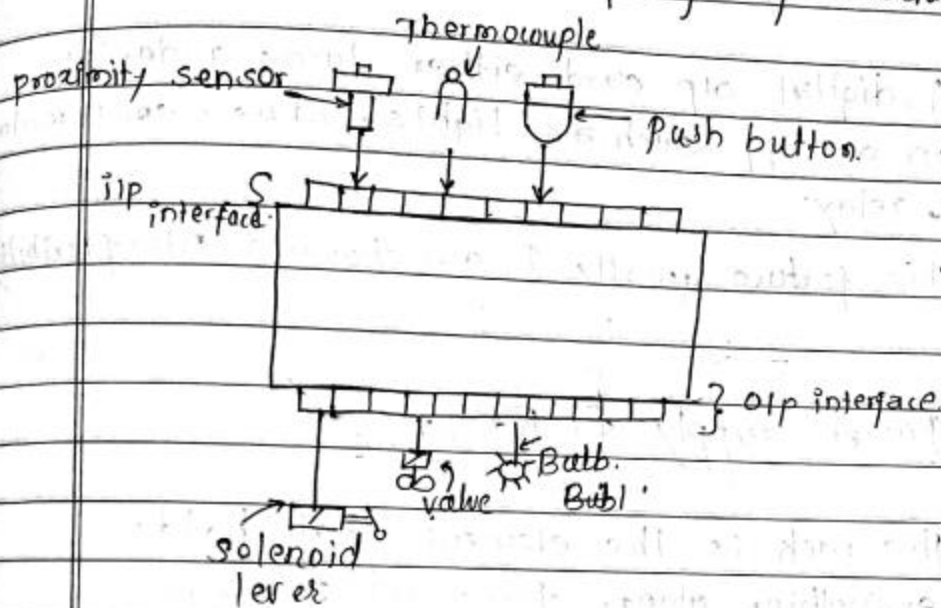 Thermocouple
proximity sensor
push button.
i/p
interface.
o/p interface.
Bulb.
valve
Bubl
solenoid
lever